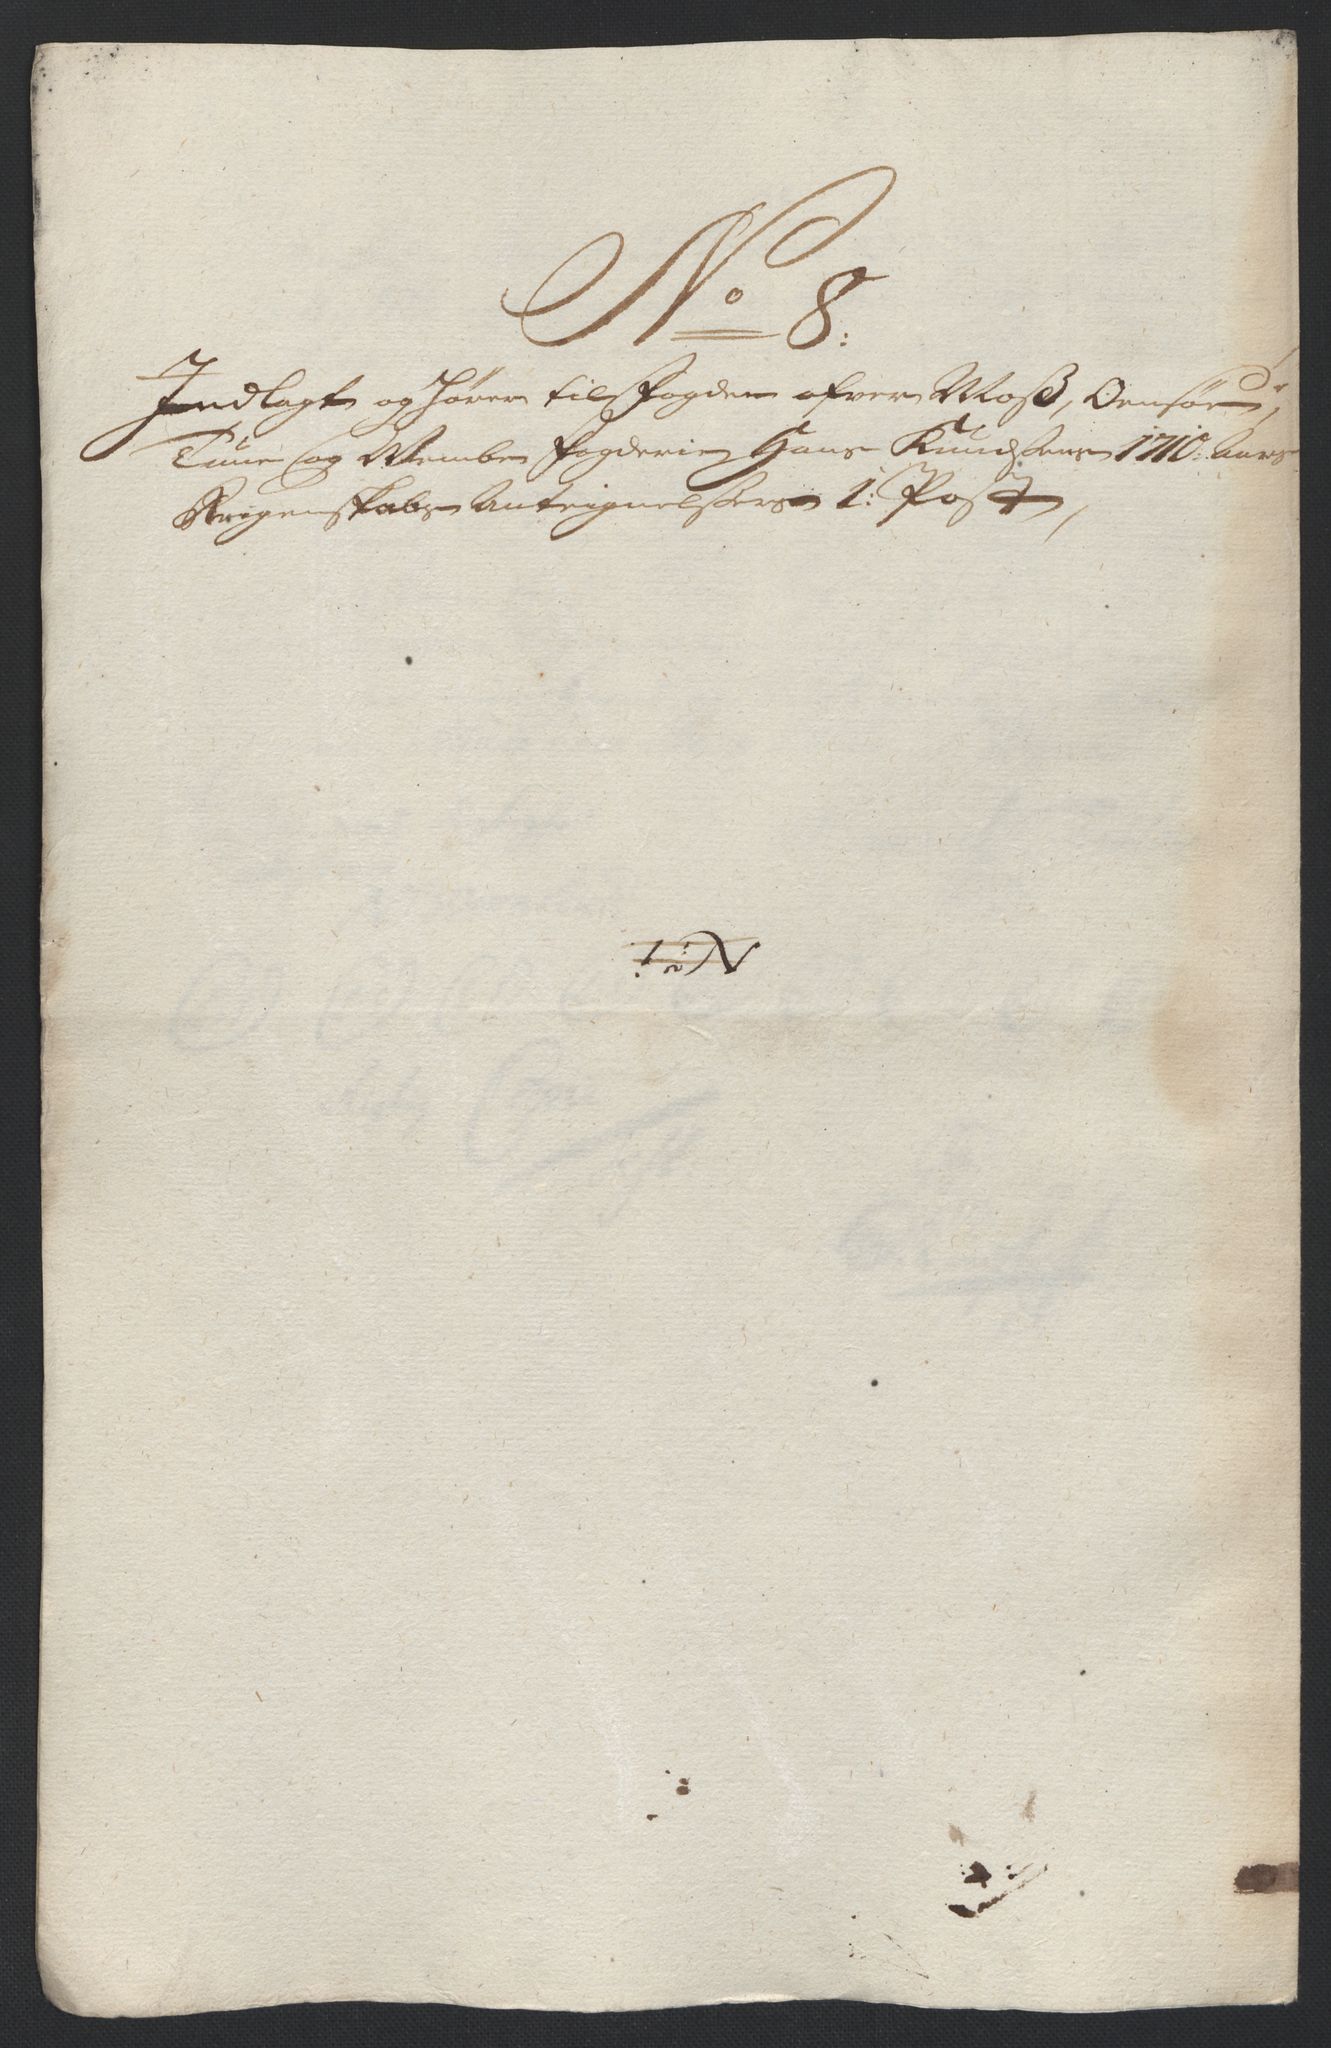 No 8:
Indlagt og hører til Fogden ofver Moss, Oensøe,
Tune og Wembe Fogderie Hans Knudsens 1710: Aars
Regenskabs Antegnelsers 1: Post,
No 1: